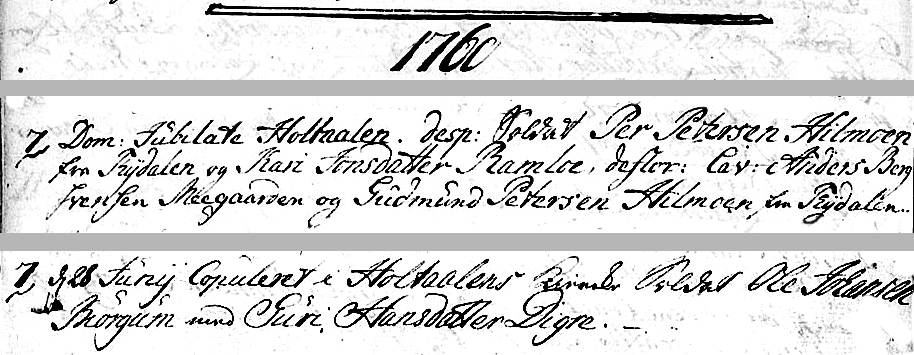 1760
Dom: Jubilate Holtaalen. desp: Soldat Per Petersen Hilmoen
fra Tydalen og Kari Jonsdatter Ramloe, deflor: Cav: Anders Berg
Svensen Meegaarden og Gudmund Petersen Hilmoen fra Tydalen..
d. 28 Junij Copuleret i Holtaalens Kircke Soldat Ole Johansen
Morgum med Guri Hansdatter Digre. -